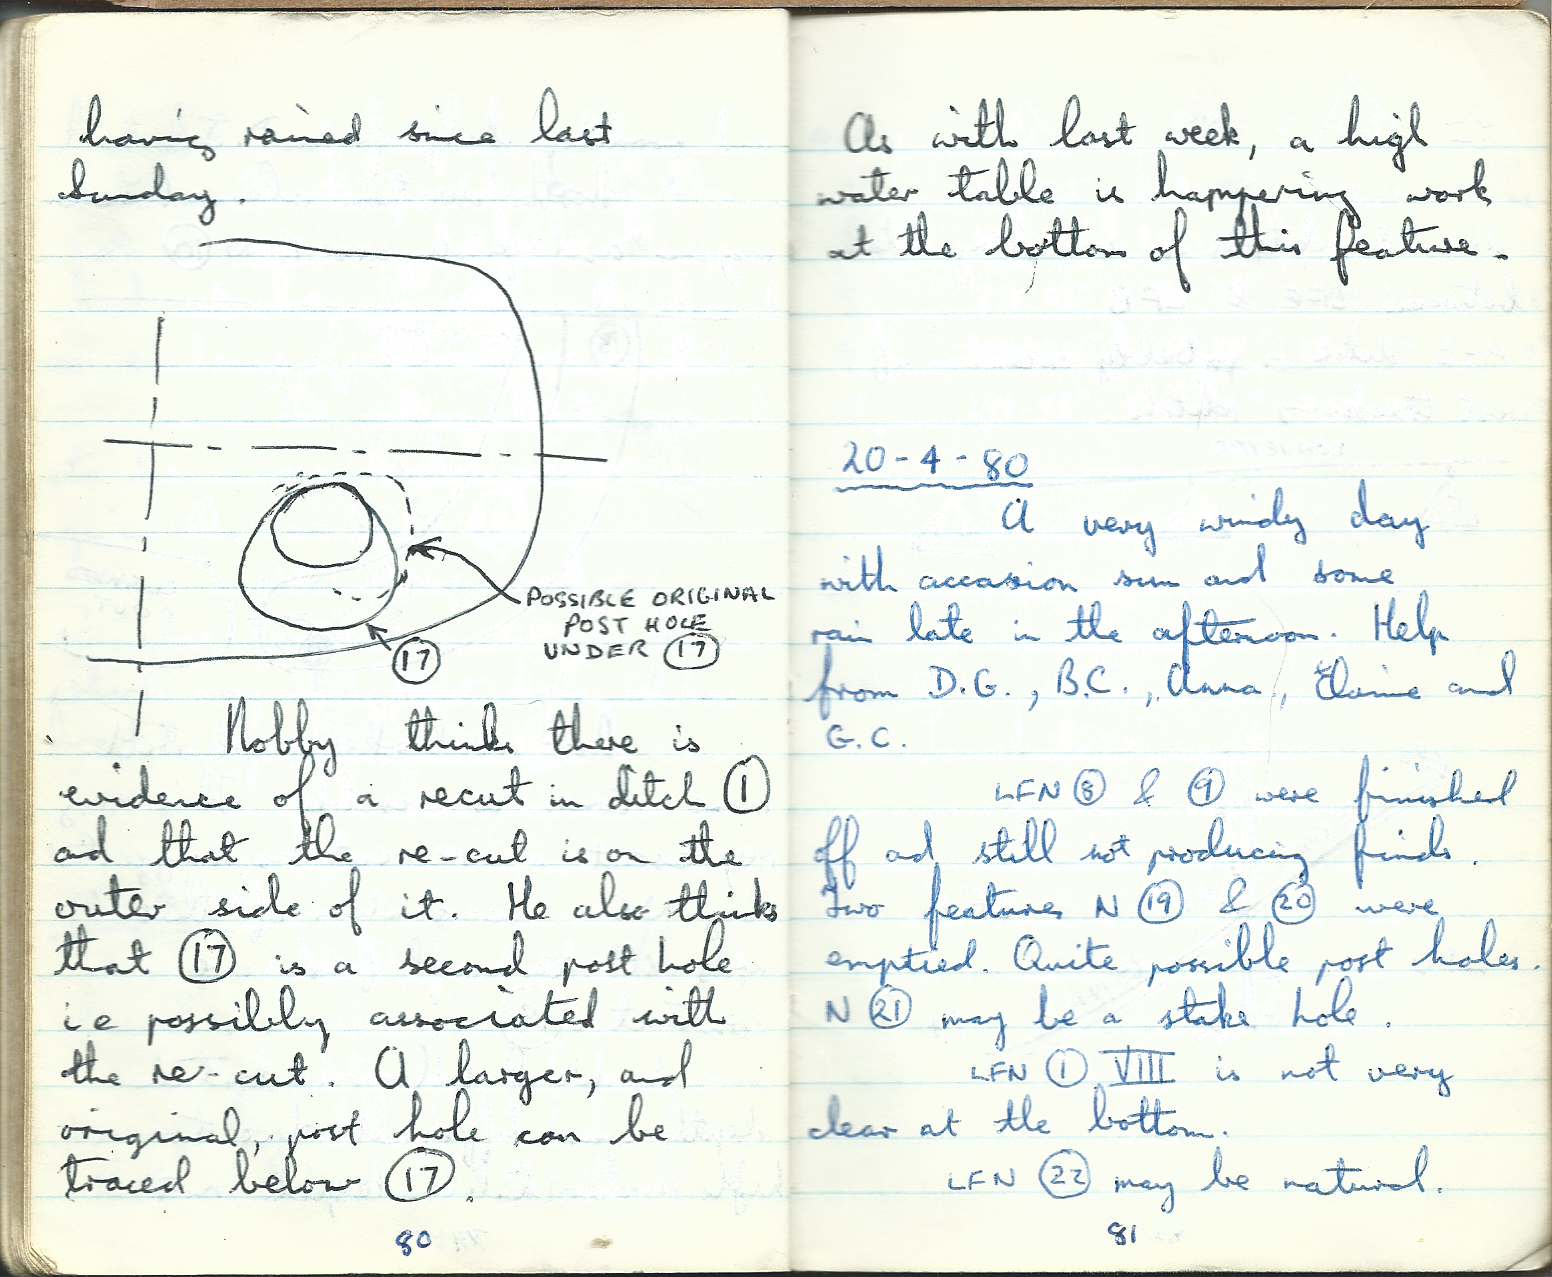 having rained since last
Sunday.
POSSIBLE ORIGINAL
POST HOLE
UNDER 17
17
Nobby thinks there is
evidence of a recut in ditch 1
and that the re-cut is on the
outer side of it. He also thinks
that 17 is a second post hole
i e possibly associated with
the re-cut. A larger, and
original, post hole can be
traced below 17.
80
As with last week, a high
water table is hampering work
at the bottom of this feature.
20-4-80
A very windy day
with occasion sun and some
rain late in the afternoon. Help
from D.G., B.C., Anna, Elaine and
G.C.
LFN 8 & 9 were finished
off and still not producing finds.
Two features N 19 & 20 were
emptied. Quite possible post holes.
N 21 may be a stake hole.
LFN 1 VIII is not very
clear at the bottom.
LFN 22 may be natural.
81